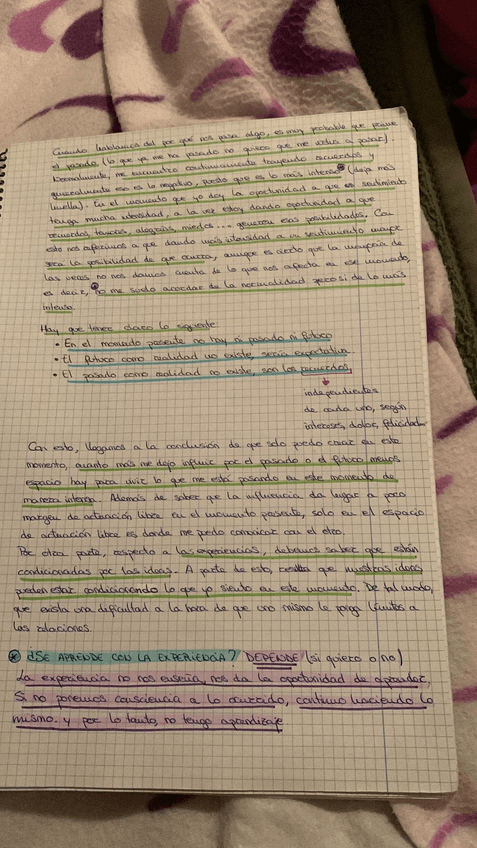 Cuando hablamos del por qué nos pasa algo, es muy probable que prime
el pasado (lo que ya me ha pasado no quiero que me vuelva a pasar)
Normalmente, me encuentro continuamente trayendo recuerdos y
generalmente eso es lo negativo, puesto que es lo más intenso (deja más
huella). En el momento que yo doy la oportunidad a que un sentimiento
tenga mucha intensidad, a la vez estoy dando oportunidad a que
recuerdos, traumas, alegrías, miedos... generen esas posibilidades. Con
esto nos referimos a que dando más intensidad a un sentimiento mayor
será la posibilidad de que ocurra, aunque es cierto que la mayoría de
las veces no nos damos cuenta de lo que nos afecta en ese momento,
es decir, no me suelo acordar de la normalidad pero si de lo más
intenso.
Hay que tener claro lo siguiente
• En el momento presente no hay ni pasado ni futuro
• El futuro como realidad no existe, sería expectativa.
• El pasado como realidad no existe, son los recuerdos,
independientes
de cada uno, según
intereses, dolor, felicidad...
Con esto, llegamos a la conclusión de que solo puedo crear en este
momento, cuanto más me dejo influir por el pasado o el futuro menos
espacio hay para vivir lo que me está pasando en este momento de
manera interna. Además de saber que la influencia da lugar a poco
margen de actuación libre en el momento presente, solo en el espacio
de actuación libre es donde me puedo comunicar con el otro.
Por otra parte, respecto a las experiencias, debemos saber que están
condicionadas por las ideas. A parte de esto, resulta que nuestras ideas
pueden estar condicionando lo que yo siento en este momento. De tal modo,
que exista una dificultad a la hora de que uno mismo le ponga límites a
las relaciones.
* ¿SE APRENDE CON LA EXPERIENCIA? DEPENDE (si quiero o no)
La experiencia no nos enseña, nos da la oportunidad de aprender
Si no ponemos consciencia a lo ocurrido, continuo haciendo lo
mismo y por lo tanto, no tengo aprendizaje